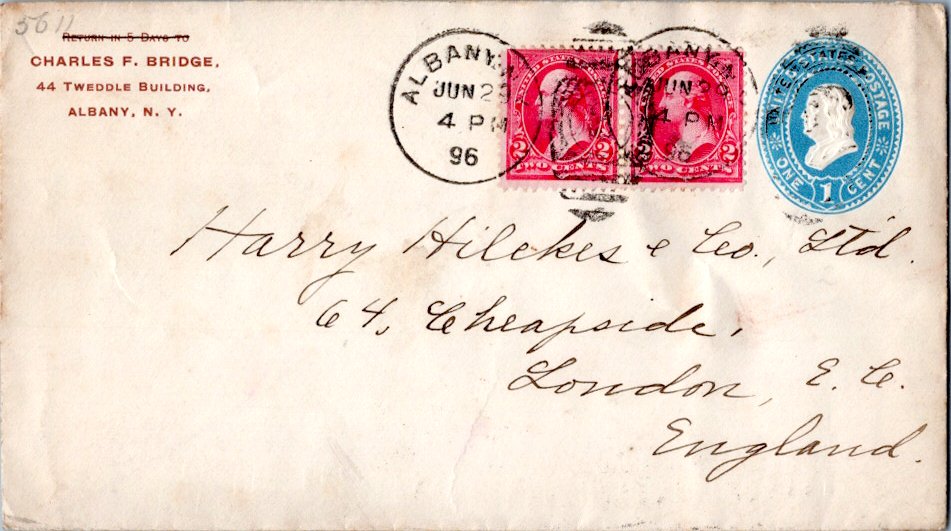 5611
RETURN IN 5 DAYS TO
CHARLES F. BRIDGE,
44 TWEDDLE BUILDING,
ALBANY, N. Y.
ALBANY, N.
JUN 2
4 PM
96
ALBANY, N.
JUN 2
4 PM
96
2 2
TWO CENTS
2 2
TWO CENTS
UNITED STATES POSTAGE
ONE 1 CENT
Harry Hilckes & Co., Ltd.
64, Cheapside,
London, E. C.
England.